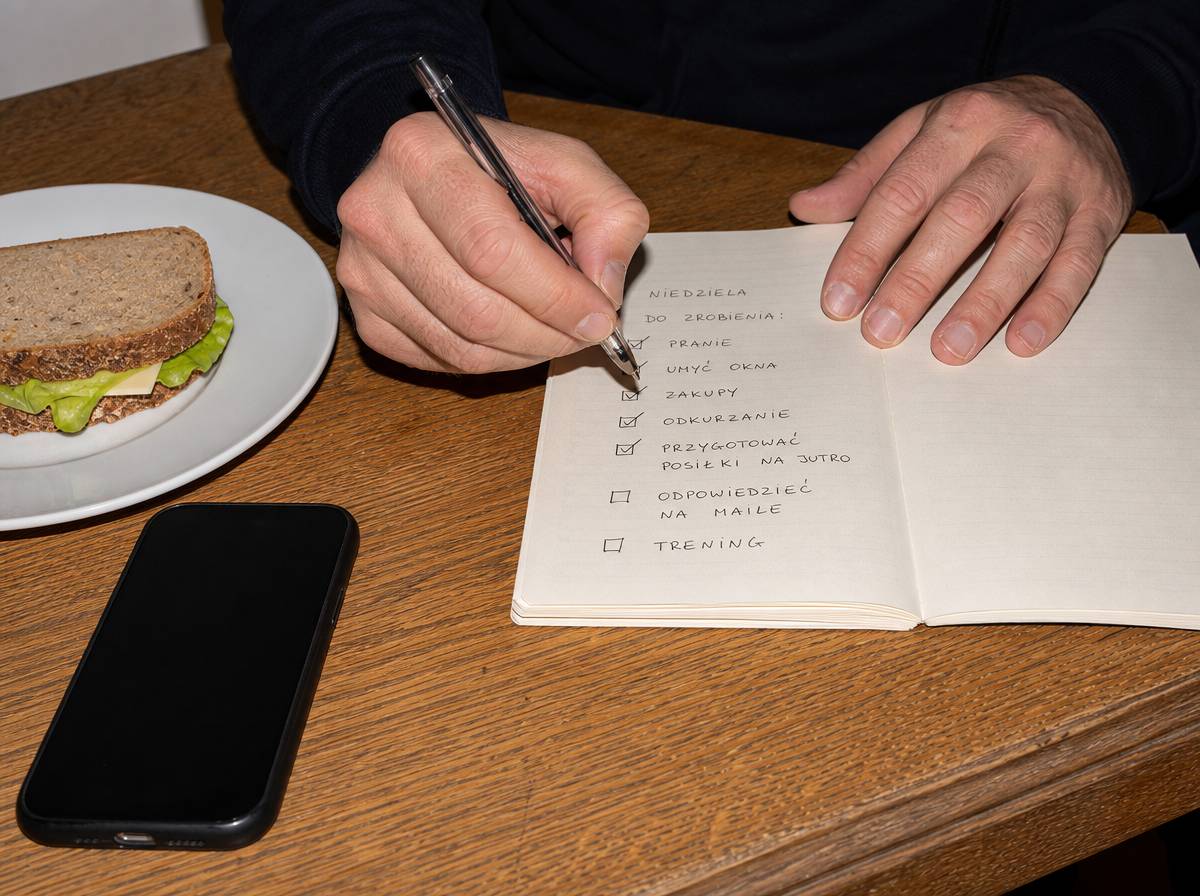 NIEDZIELA
DO ZROBIENIA:
PRANIE
UMYĆ OKNA
ZAKUPY
ODKURZANIE
PRZYGOTOWAĆ
POSIŁKI NA JUTRO
ODPOWIEDZIEĆ
NA MAILE
TRENING